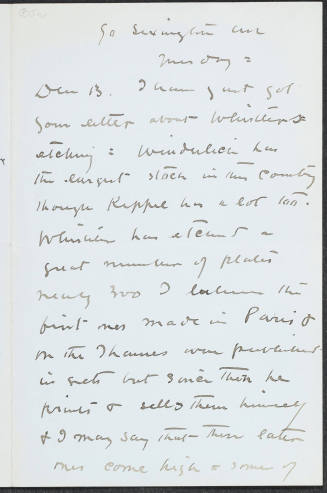 90 Lexington Ave
Tuesday =
Dear B. I have just got
your letter about Whistlers
etching = Wunderlich has
the largest stock in this country
though Keppel has a lot too.
Whistler has etched a
great number of plates
nearly 300 I believe the
first ones made in Paris &
on the Thames were published
in sets but since then he
prints & sells them himself
& I may say that these later
ones come high & some of